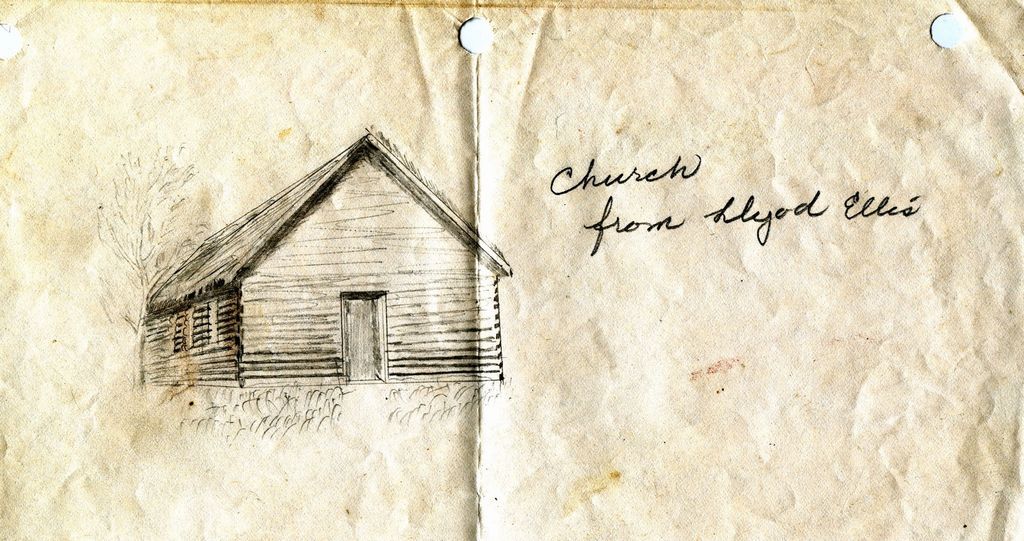 Church
from Llyod Ellis